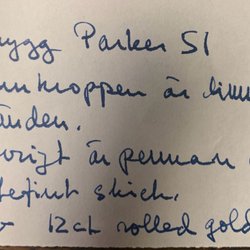 nygg Parker 51
nnkroppen är lim
änden.
vrigt är penman
tefint skick.
12ct rolled gold